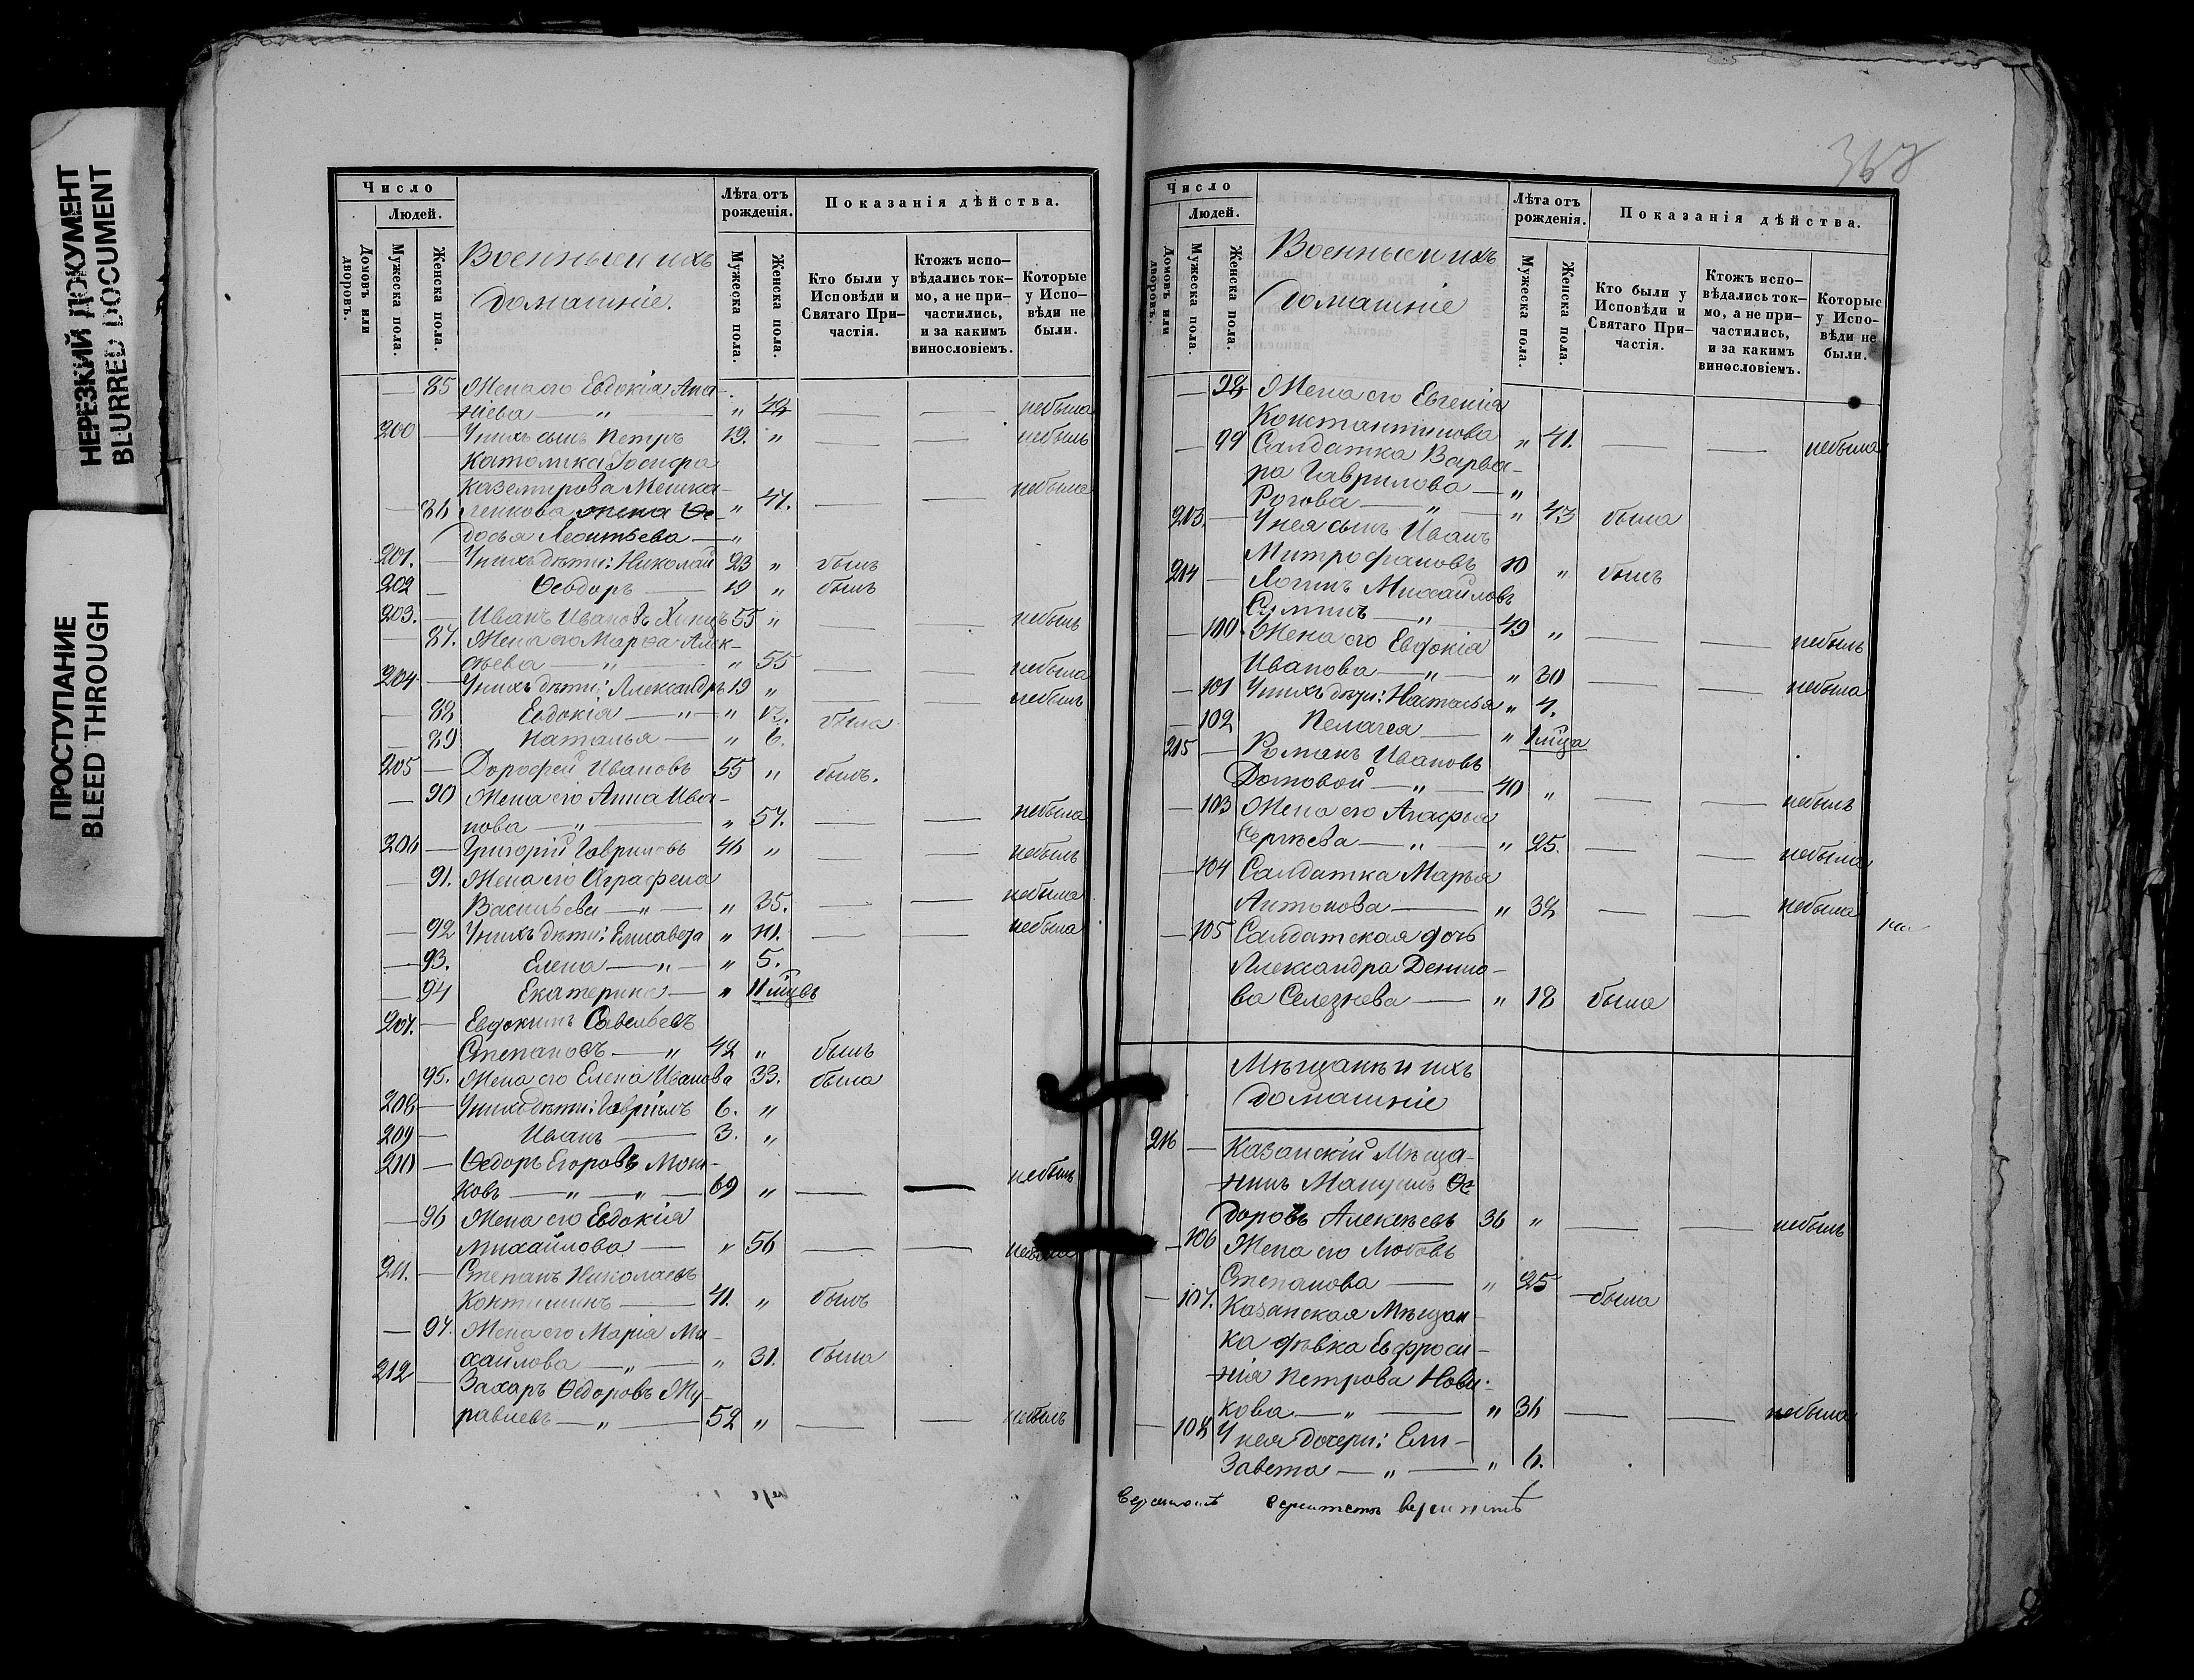 НЕРЕЗКИЙ ДОКУМЕНТ
BLURRED DOCUMENT
ПРОСТУПАНИЕ
BLEED THROUGH
Число
Людей.
Домовъ или дворовъ.
Мужеска пола.
Женска пола.
Военные и ихъ
домашніе.
Лѣта отъ рожденія.
Мужеска пола.
Женска пола.
Показанія дѣйства.
Кто были у Исповѣди и Святаго При-частія.
Ктожъ испо-вѣдались ток-мо, а не при-частились, и за какимъ винословіемъ.
Которые у Испо-вѣди не были.
— 85 Жена его Евдокія Ана-
ніева — „ — „ — — небыла
200 — У нихъ сынъ Петръ 19. „ — — небылъ
Католика Іосифа
Каземирова Мешка-
— 86 Ленкова жена Ѳе- „ 47. — — небыла
досья Леонтьева — „
201. — У нихъ дѣти: Николай 23 „ былъ
202 — Ѳеодоръ — 19 „ былъ
203. — Иванъ Ивановъ 55 „ — — небылъ
— 87. Жена его Марѳа Алек-
сѣева — „ — „ 55 — — небыла
204 — У нихъ дѣти: Александръ 19 „ — — небылъ
— 88 Евдокія — „ — „ была
— 89 Наталья — „ 6.
205 — Дорофей Ивановъ 55 „ былъ.
— 90 Жена его Анна Ива-
нова — „ — „ 57. — — небыла
206 — Григорій Гавриловъ 46 „ — — небылъ
— 91. Жена его Аграфена
Васильева — „ — „ 35. — — небыла
— 92 У нихъ дѣти: Елисавета „ 10. — — небыла
— 93. Елена — „ — „ 5.
— 94 Екатерина — „ 11 мцвъ
207. — Евдокимъ Савельевъ
Степановъ — „ 42 „ былъ
95. Жена его Елена Иванова 33. была
208 — У нихъ дѣти: Гавріилъ 6. „
209 — Иванъ — 3. „
210 — Ѳедоръ Егоровъ Мош-
ковъ — „ — „ — 69 „ — — небылъ
— 96 Жена его Евдокія
Михайлова — „ 56 — — небыла
211. — Степанъ Николаевъ
— 41. „ былъ
— 97. Жена его Марія Ми-
хайлова — „ — „ 31. была
212 — Захаръ Ѳедоровъ Му-
равлевъ — „ — 52 „ — — небылъ
368
Число
Людей.
Домовъ или дворовъ.
Мужеска пола.
Женска пола.
Военные и ихъ
домашніе
Лѣта отъ рожденія.
Мужеска пола.
Женска пола.
Показанія дѣйства.
Кто были у Исповѣди и Святаго При-частія.
Ктожъ испо-вѣдались ток-мо, а не при-частились, и за какимъ винословіемъ.
Которые у Испо-вѣди не были.
— 98 Жена его Евгенія
Константинова „ 41. — — небыла
— 99 Салдатка Варва-
ра Гаврилова — „
Рогова — „ — „ 43 была
213. — У нея сынъ Иванъ
Митрофановъ 10 „ былъ
214 — Логинъ Михайловъ
— „ — 49 „ — — небылъ
— 100. Жена его Евдокія
Иванова — „ — „ 30 — — небыла
— 101 У нихъ дѣти: Настасья „ 7.
— 102 Пелагея — „ 1 мцa
215 — Романъ Ивановъ
Домовой — „ — 40 „ — — небылъ
— 103 Жена его Агафья
Сергѣева — „ — „ 25. — — небыла
— 104 Салдатка Марья
Антонова — „ 38 — — небыла
— 105 Салдатская дочь
Александра Денисо-
ва Селезнева — „ 18 была
Мѣщане и ихъ
домашніе
216 — Казанскій Мѣща-
нинъ Мануилъ Ѳе
доровъ Алексѣевъ 36 „ — — небылъ
— 106 Жена его Любовь
Степанова — „ 25 была
— 107. Казанская Мѣщан-
ка дѣвка Евфроси-
нія Петрова Нови-
кова — „ — „ 36 — — небыла
— 108 У нея дочери: Ели-
завета — „ — „ 6.